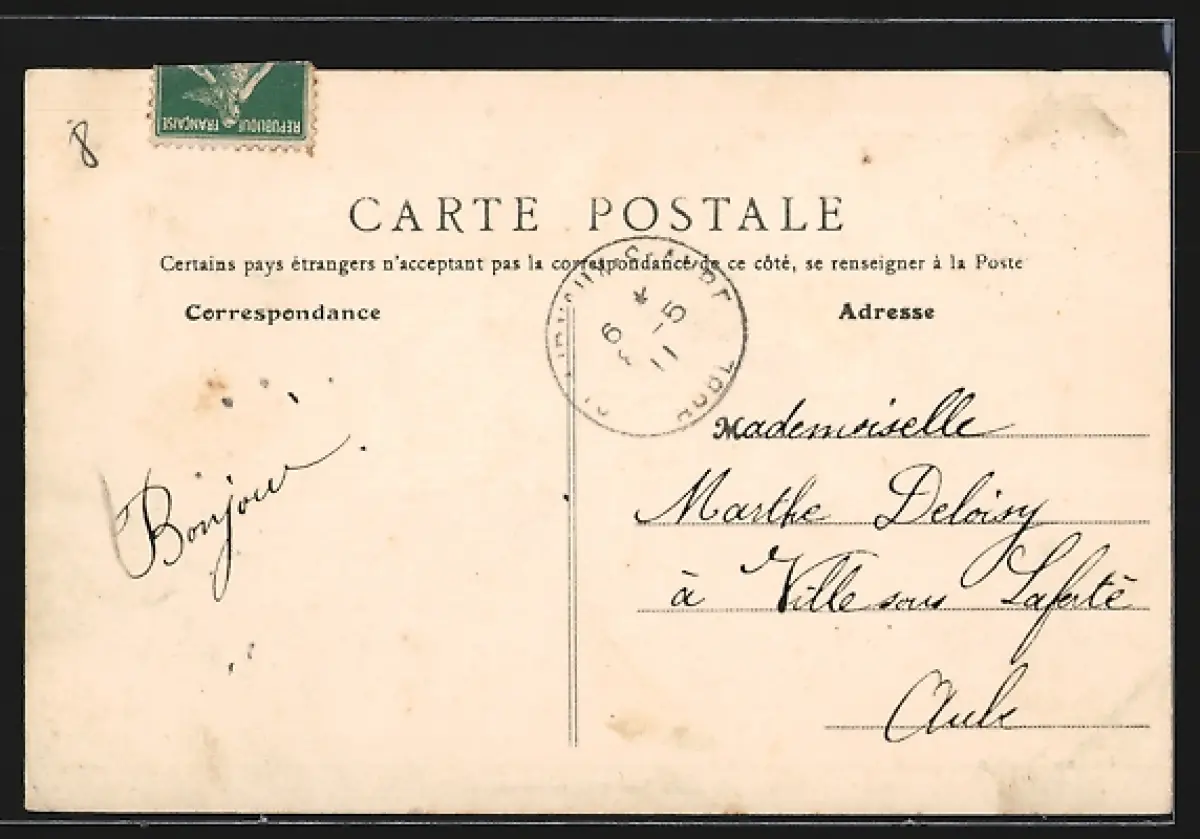 REPUBLIQUE FRANÇAISE
8
CARTE POSTALE
Certains pays étrangers n'acceptant pas la correspondance de ce côté, se renseigner à la Poste
Correspondance
Adresse
6
5
11
Bonjour
Mademoiselle
Marthe Deloisy
à Ville sous Laferté
Aube